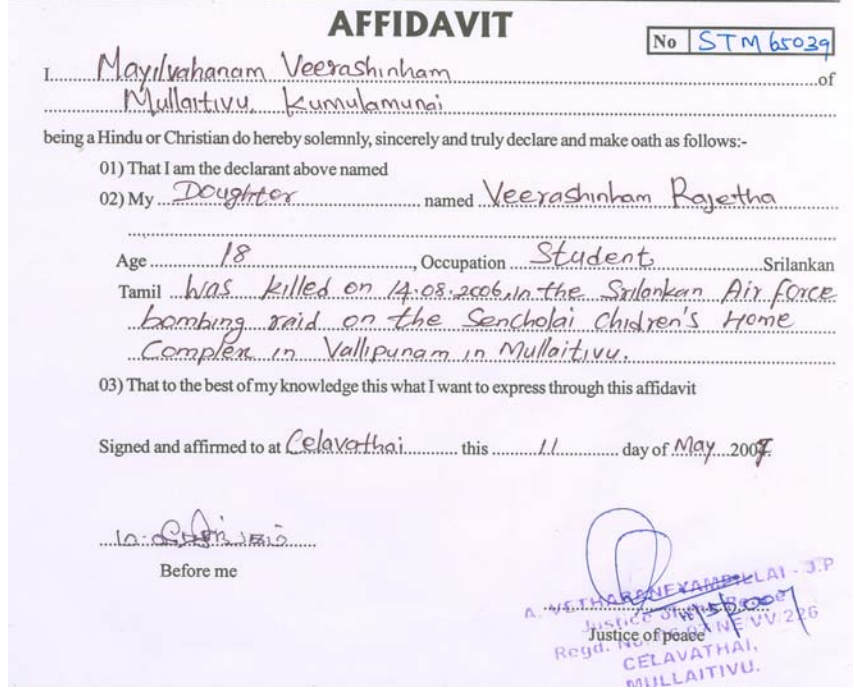 AFFIDAVIT
No STM 65039
I Mayilvahanam Veerashinham of
Mullaitivu. Kumulamunai
being a Hindu or Christian do hereby solemnly, sincerely and truly declare and make oath as follows:-
01) That I am the declarant above named
02) My Doughter named Veerashinham Rajetha
Age 18, Occupation Student Srilankan
Tamil Was killed on 14.08.2006, in the Srilankan Air force
bombing raid on the Sencholai Chidren's Home
Complex in Vallipunam in Mullaitivu.
03) That to the best of my knowledge this what I want to express through this affidavit
Signed and affirmed to at Celavathai this 11 day of May 2007
Before me
A. VETHARANEYAMPILLAI - J.P
Justice of the Peace
Justice of peace
Regd. No. NE/VV/226
CELAVATHAI,
MULLAITIVU.